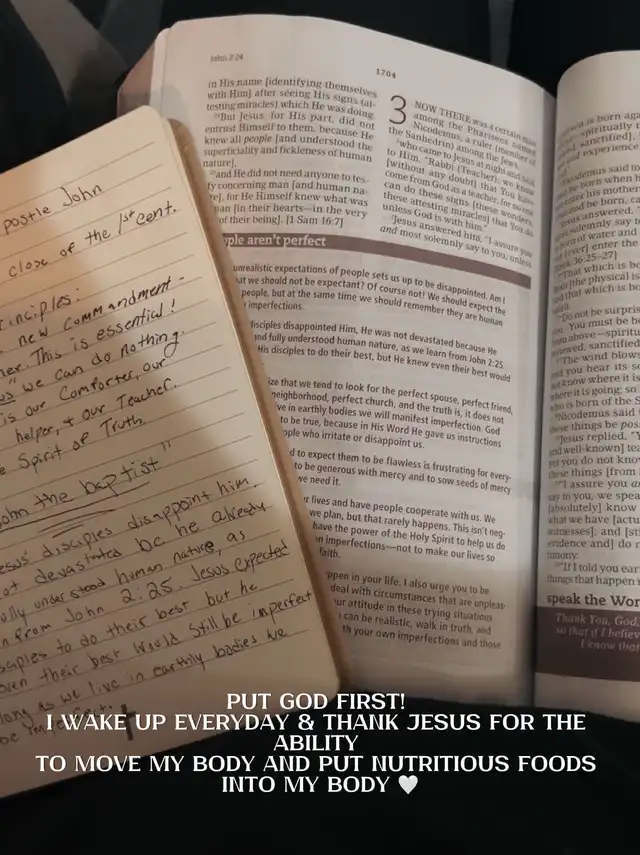 postle John
close of the 1st cent.
inciples:
new commandment -
her. This is essential!
us" we can do nothing.
is our Comforter, our
helper, & our Teacher.
e Spirit of Truth.
John the baptist"
esus' disciples disappoint him.
not devastated bc he already
ully understood human nature, as
n from John 2:25. Jesus expected
isciples to do their best but he
even their best would still be imperfect
long as we live in earthly bodies we
be imperfect.
John 2:24
1704
in His name [identifying themselves
with Him] after seeing His signs (at-
testing miracles) which He was doing.
24But Jesus, for His part, did not
entrust Himself to them, because He
knew all people [and understood the
superficiality and fickleness of human
nature],
25and He did not need anyone to tes-
fy concerning man [and human na-
re], for He Himself knew what was
man [in their hearts—in the very
of their being]. [1 Sam 16:7]
3 NOW THERE was a certain man
among the Pharisees named
Nicodemus, a ruler (member of
the Sanhedrin) among the Jews,
2who came to Jesus at night and said
to Him, "Rabbi (Teacher), we know
[without any doubt] that You have
come from God as a teacher; for no one
can do these signs [these wonders,
these attesting miracles] that You do
unless God is with him."
3Jesus answered him, "I assure you
and most solemnly say to you, unless
ople aren't perfect
unrealistic expectations of people sets us up to be disappointed. Am I
at we should not be expectant? Of course not! We should expect the
people, but at the same time we should remember they are human
imperfections.
disciples disappointed Him, He was not devastated because He
and fully understood human nature, as we learn from John 2:25.
His disciples to do their best, but He knew even their best would
ize that we tend to look for the perfect spouse, perfect friend,
neighborhood, perfect church, and the truth is, it does not
ve in earthly bodies we will manifest imperfection. God
to be true, because in His Word He gave us instructions
ople who irritate or disappoint us.
d to expect them to be flawless is frustrating for every-
to be generous with mercy and to sow seeds of mercy
we need it.
r lives and have people cooperate with us. We
we plan, but that rarely happens. This isn't neg-
have the power of the Holy Spirit to help us do
n imperfections—not to make our lives so
faith.
ppen in your life. I also urge you to be
deal with circumstances that are unpleas-
ur attitude in these trying situations
can be realistic, walk in truth, and
th your own imperfections and those
is born again
spiritually t
sanctified].
experience
icodemus said to
be born when h
enter his mother
and be born, ca
us answered, "
solemnly say to
of water and
[ever] enter the
36:25-27]
6That which is bo
[the physical is
and that which is bo
Do not be surpris
You must be bo
from above—spiritu
newed, sanctified
8The wind blow
and you hear its so
know where it is
where it is going; so
who is born of the S
9Nicodemus said
these things be pos
10Jesus replied, "Y
and well-known] tea
yet you do not know
these things [from
11I assure you an
say to you, we speak
[absolutely] know
what we have [actu
witnesses]; and [sti
evidence and] do
timony.
12If I told you ear
things that happen
speak the Wor
Thank You, God,
so that if I believe
I know that
PUT GOD FIRST!
I WAKE UP EVERYDAY & THANK JESUS FOR THE
ABILITY
TO MOVE MY BODY AND PUT NUTRITIOUS FOODS
INTO MY BODY 🤍